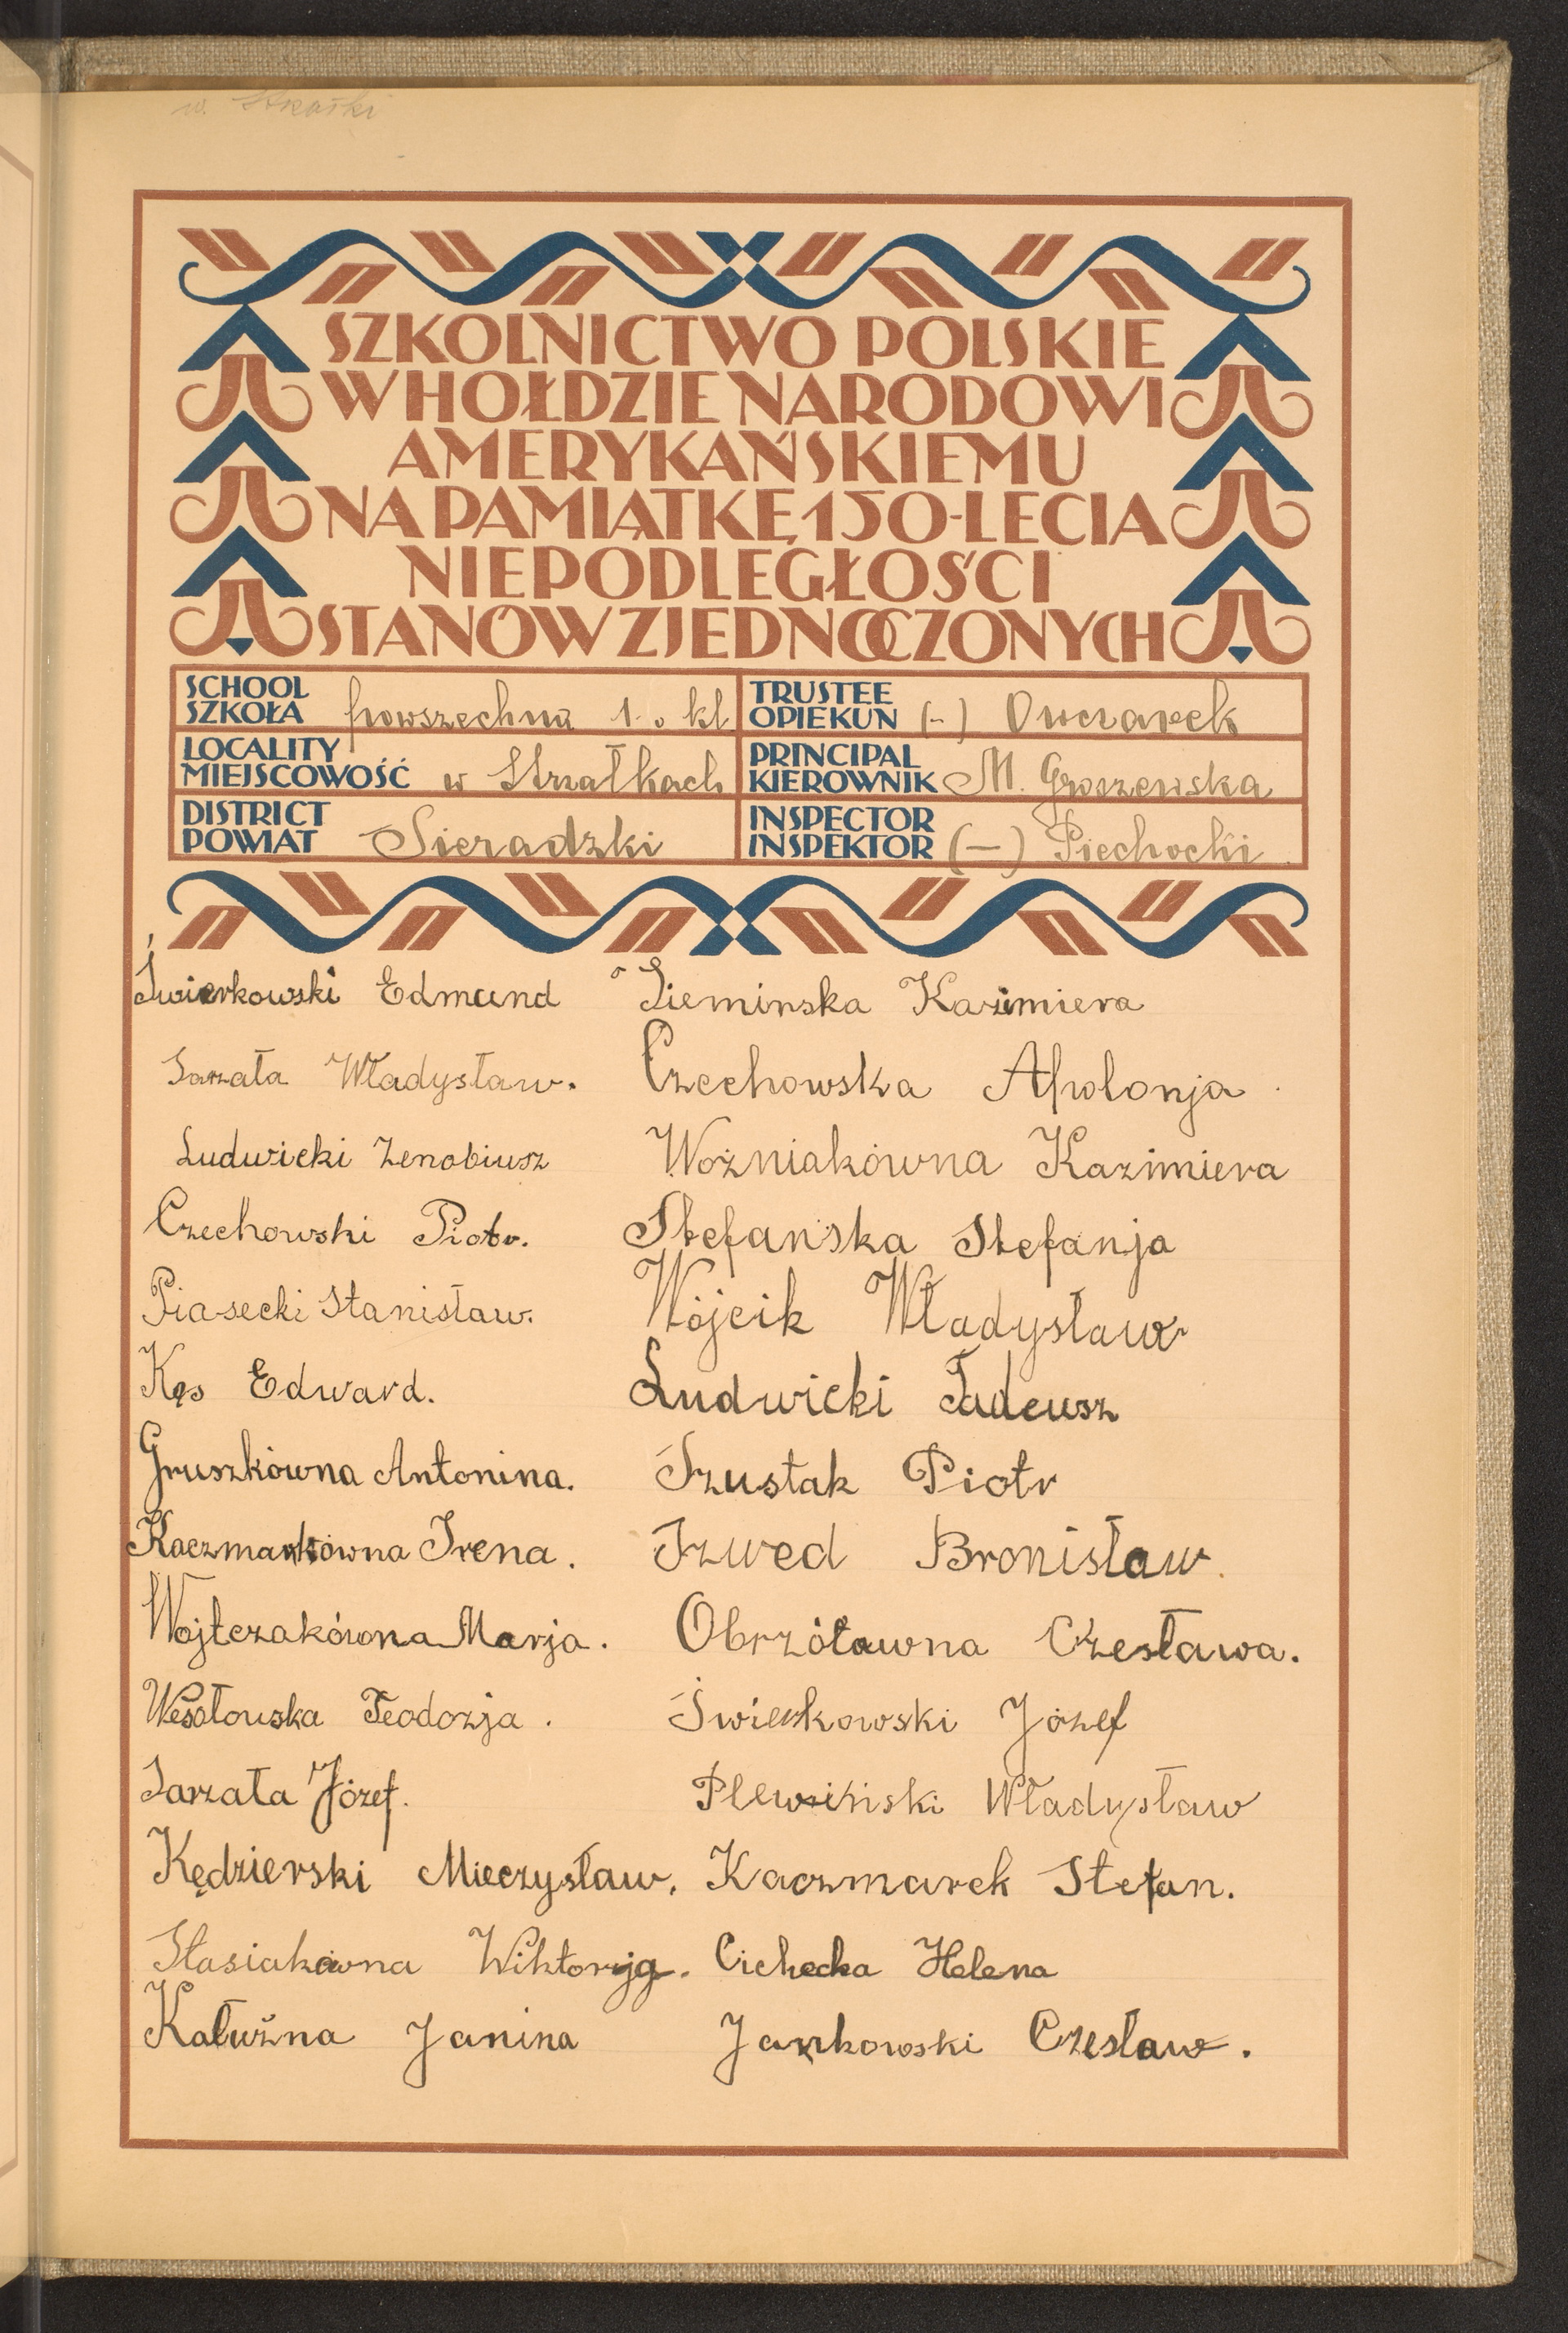 w. Strzałki
SZKOLNICTWO POLSKIE
W HOŁDZIE NARODOWI
AMERYKAŃSKIEMU
NA PAMIĄTKĘ 150-LECIA
NIEPODLEGŁOŚCI
STANÓW ZJEDNOCZONYCH
SCHOOL
SZKOŁA powszechna 1-o kl
TRUSTEE
OPIEKUN (-) Owczarek
LOCALITY
MIEJSCOWOŚĆ w Strzałkach
PRINCIPAL
KIEROWNIK M. Groszewska
DISTRICT
POWIAT Sieradzki
INSPECTOR
INSPEKTOR (-) Piechocki
Świerkowski Edmund
Sarzała Władysław.
Ludwicki Zenobiusz
Czechowski Piotr.
Piasecki Stanisław.
Kęs Edward.
Gruszkówna Antonina.
Kaczmarkówna Irena.
Wojtczakówna Marja.
Wesołowska Teodozja.
Sarzała Józef.
Kędzierski Mieczysław.
Stasiakówna Wiktorja.
Kałużna Janina
Ziemińska Kazimiera
Czechowska Apolonja
Woźniakówna Kazimiera
Stefańska Stefanja
Wójcik Władysław
Ludwicki Tadeusz
Szustak Piotr
Szwed Bronisław.
Obrzóławna Czesława.
Świerkowski Józef
Plewiński Władysław
Kaczmarek Stefan.
Cichecka Helena
Jankowski Czesław.